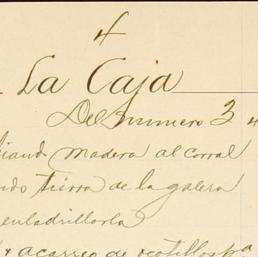 4
La Caja
Del numero 3 4
madera al corral
tierra de la galera
enladrillarla
acarreo de ocotillos